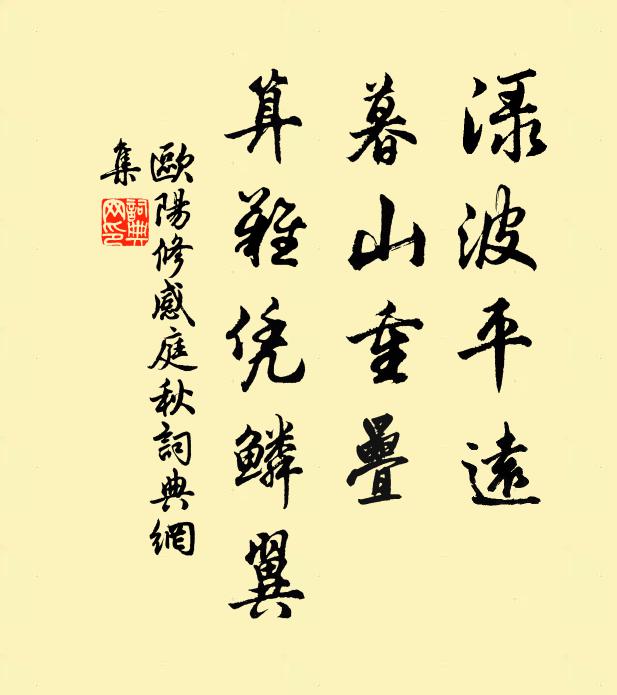 渌波平遠
暮山重疊
算難凭鱗翼
歐陽修感庭秋詞典網
集
詞典
网印